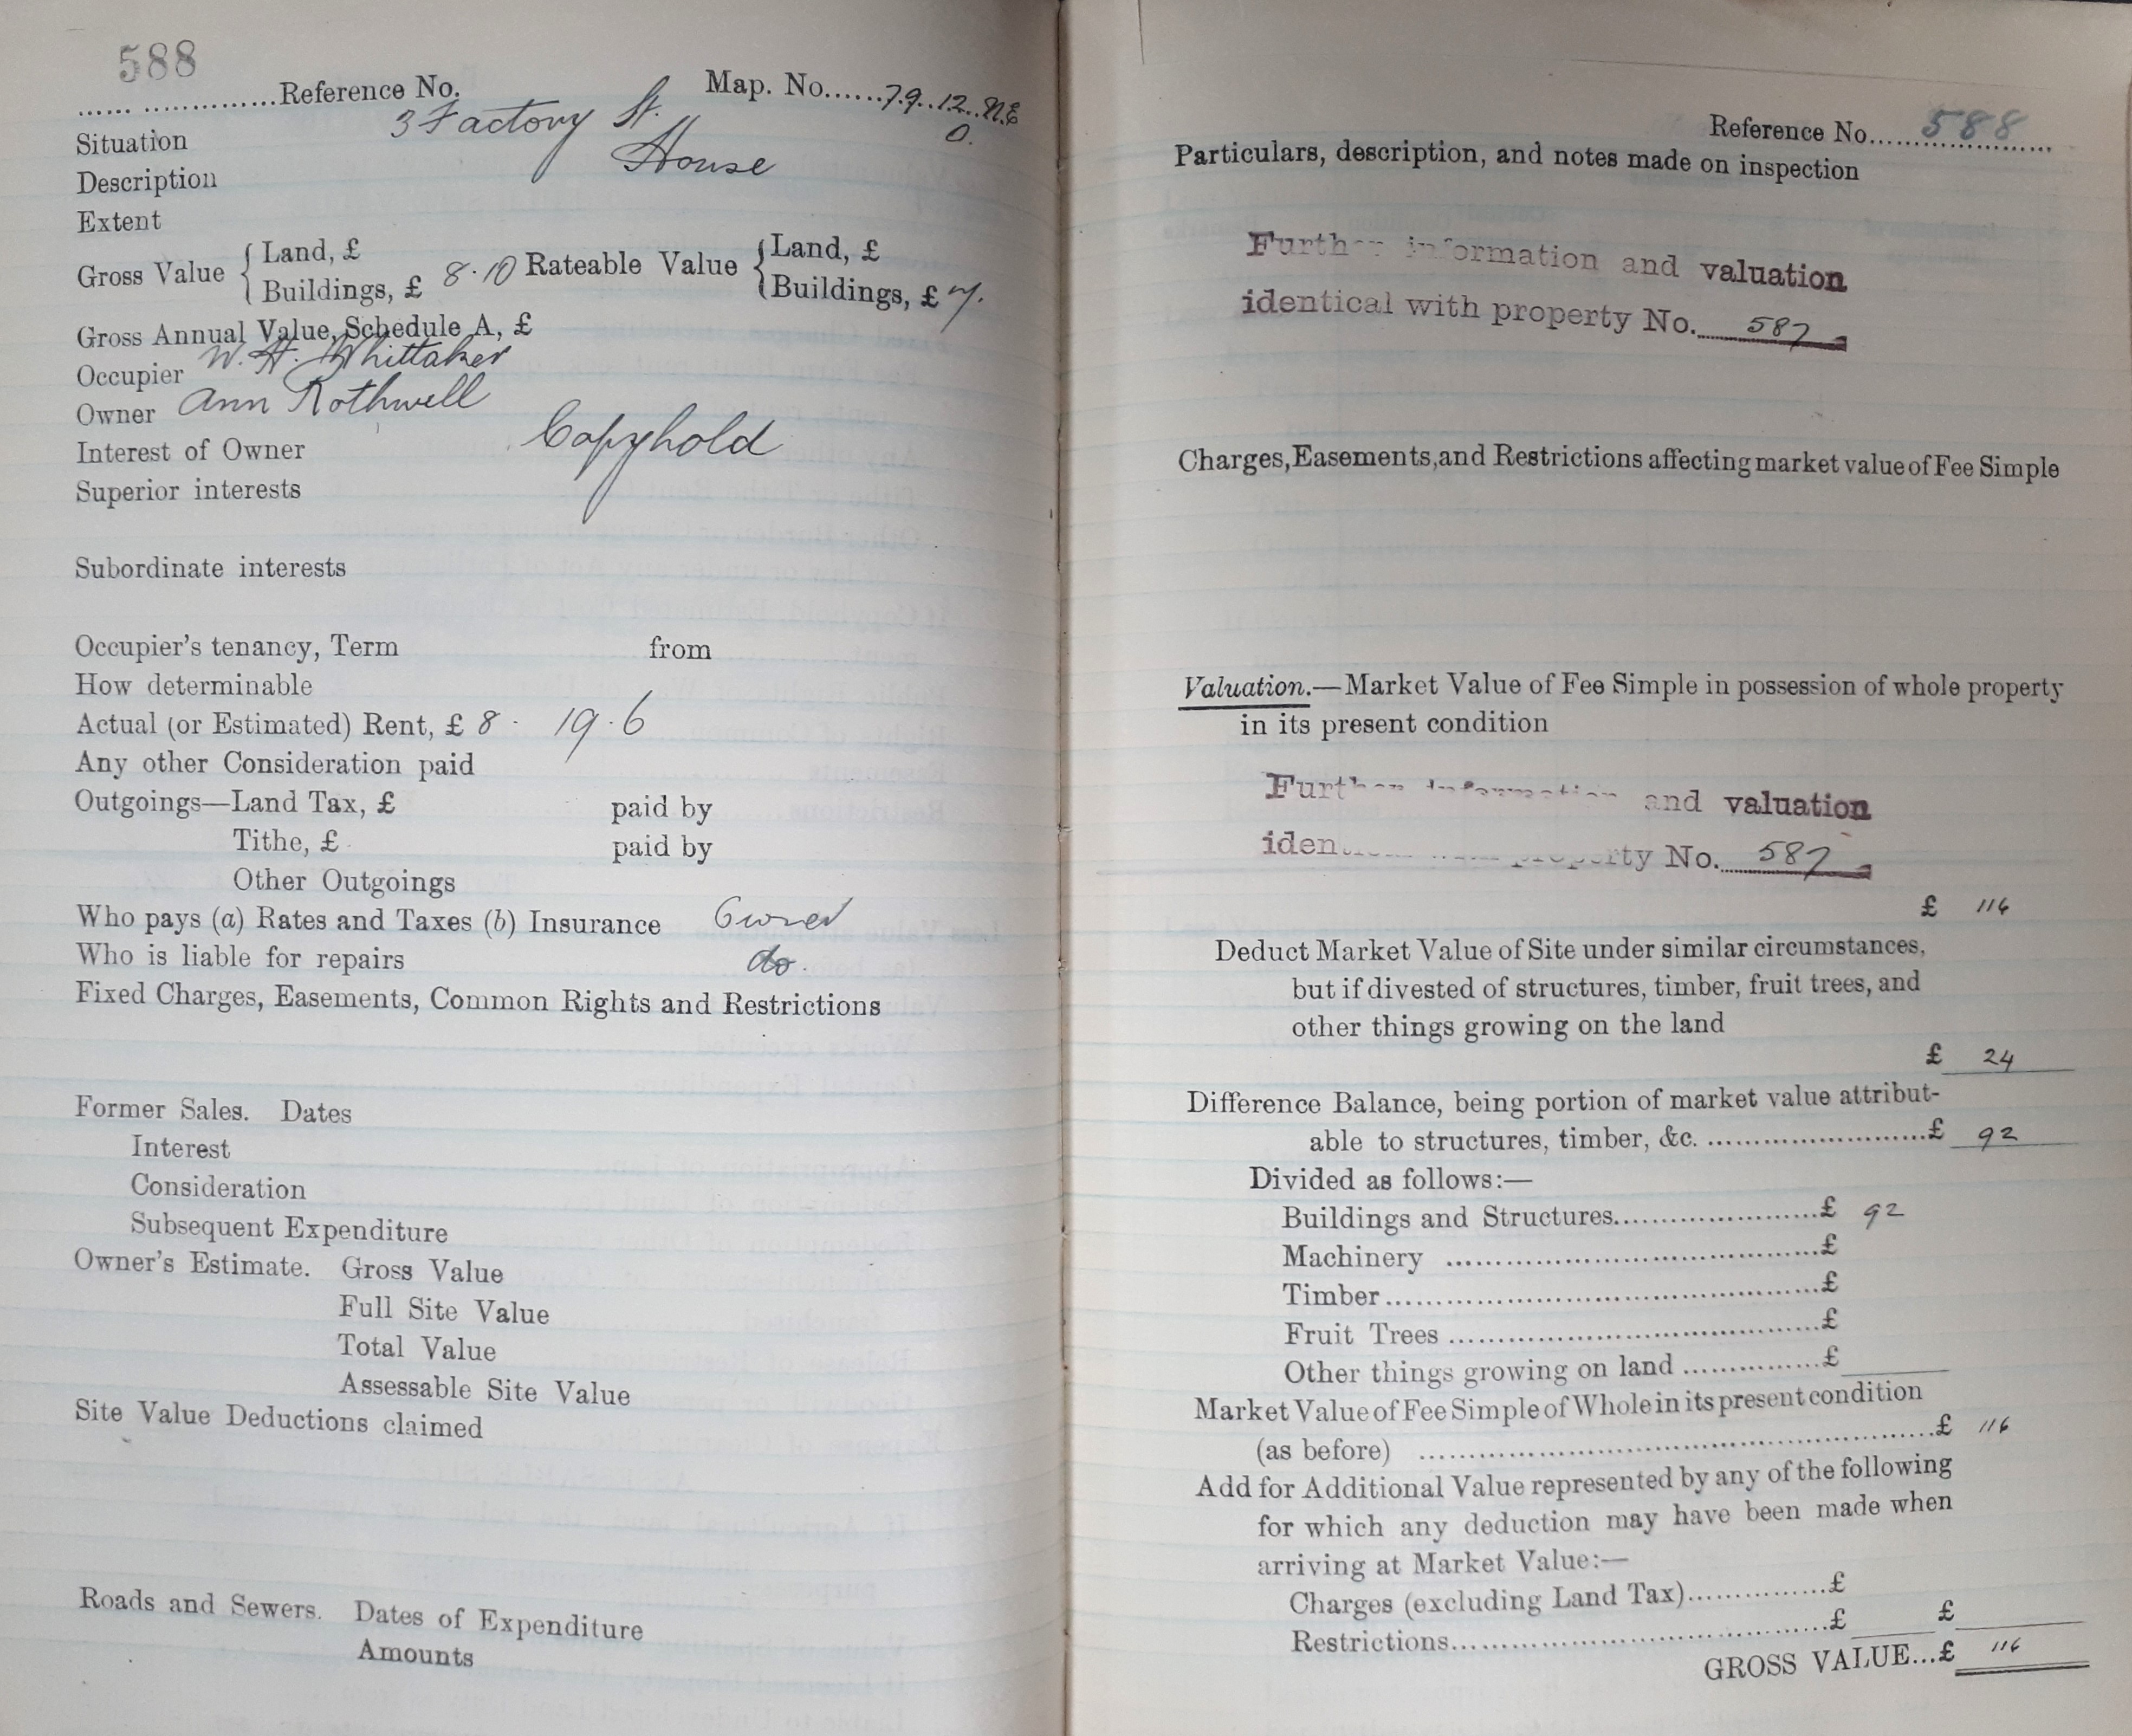 588
...... ...............Reference No. Map. No......79..12..N.E
Situation 3 Factory St. O.
Description House
Extent
Gross Value { Land, £ Rateable Value { Land, £
Buildings, £ 8.10 Buildings, £ 7.
Gross Annual Value, Schedule A, £
Occupier W. H. Whittaker
Owner Ann Rothwell
Interest of Owner Copyhold
Superior interests
Subordinate interests
Occupier's tenancy, Term from
How determinable
Actual (or Estimated) Rent, £ 8. 19.6
Any other Consideration paid
Outgoings—Land Tax, £ paid by
Tithe, £ paid by
Other Outgoings
Who pays (a) Rates and Taxes (b) Insurance Owner
Who is liable for repairs do.
Fixed Charges, Easements, Common Rights and Restrictions
Former Sales. Dates
Interest
Consideration
Subsequent Expenditure
Owner's Estimate. Gross Value
Full Site Value
Total Value
Assessable Site Value
Site Value Deductions claimed
Roads and Sewers. Dates of Expenditure
Amounts
Reference No. 588
Particulars, description, and notes made on inspection
Further information and valuation
identical with property No. 587
Charges, Easements, and Restrictions affecting market value of Fee Simple
Valuation.—Market Value of Fee Simple in possession of whole property
in its present condition
Further information and valuation
identical with property No. 587
£ 116
Deduct Market Value of Site under similar circumstances,
but if divested of structures, timber, fruit trees, and
other things growing on the land
£ 24
Difference Balance, being portion of market value attribut-
able to structures, timber, &c. ........................£ 92
Divided as follows:—
Buildings and Structures......................£ 92
Machinery ........................................£
Timber...............................................£
Fruit Trees ........................................£
Other things growing on land ...............£
Market Value of Fee Simple of Whole in its present condition
(as before) ........................................................£ 116
Add for Additional Value represented by any of the following
for which any deduction may have been made when
arriving at Market Value:—
Charges (excluding Land Tax)...............£
Restrictions.........................................£ £
GROSS VALUE...£ 116